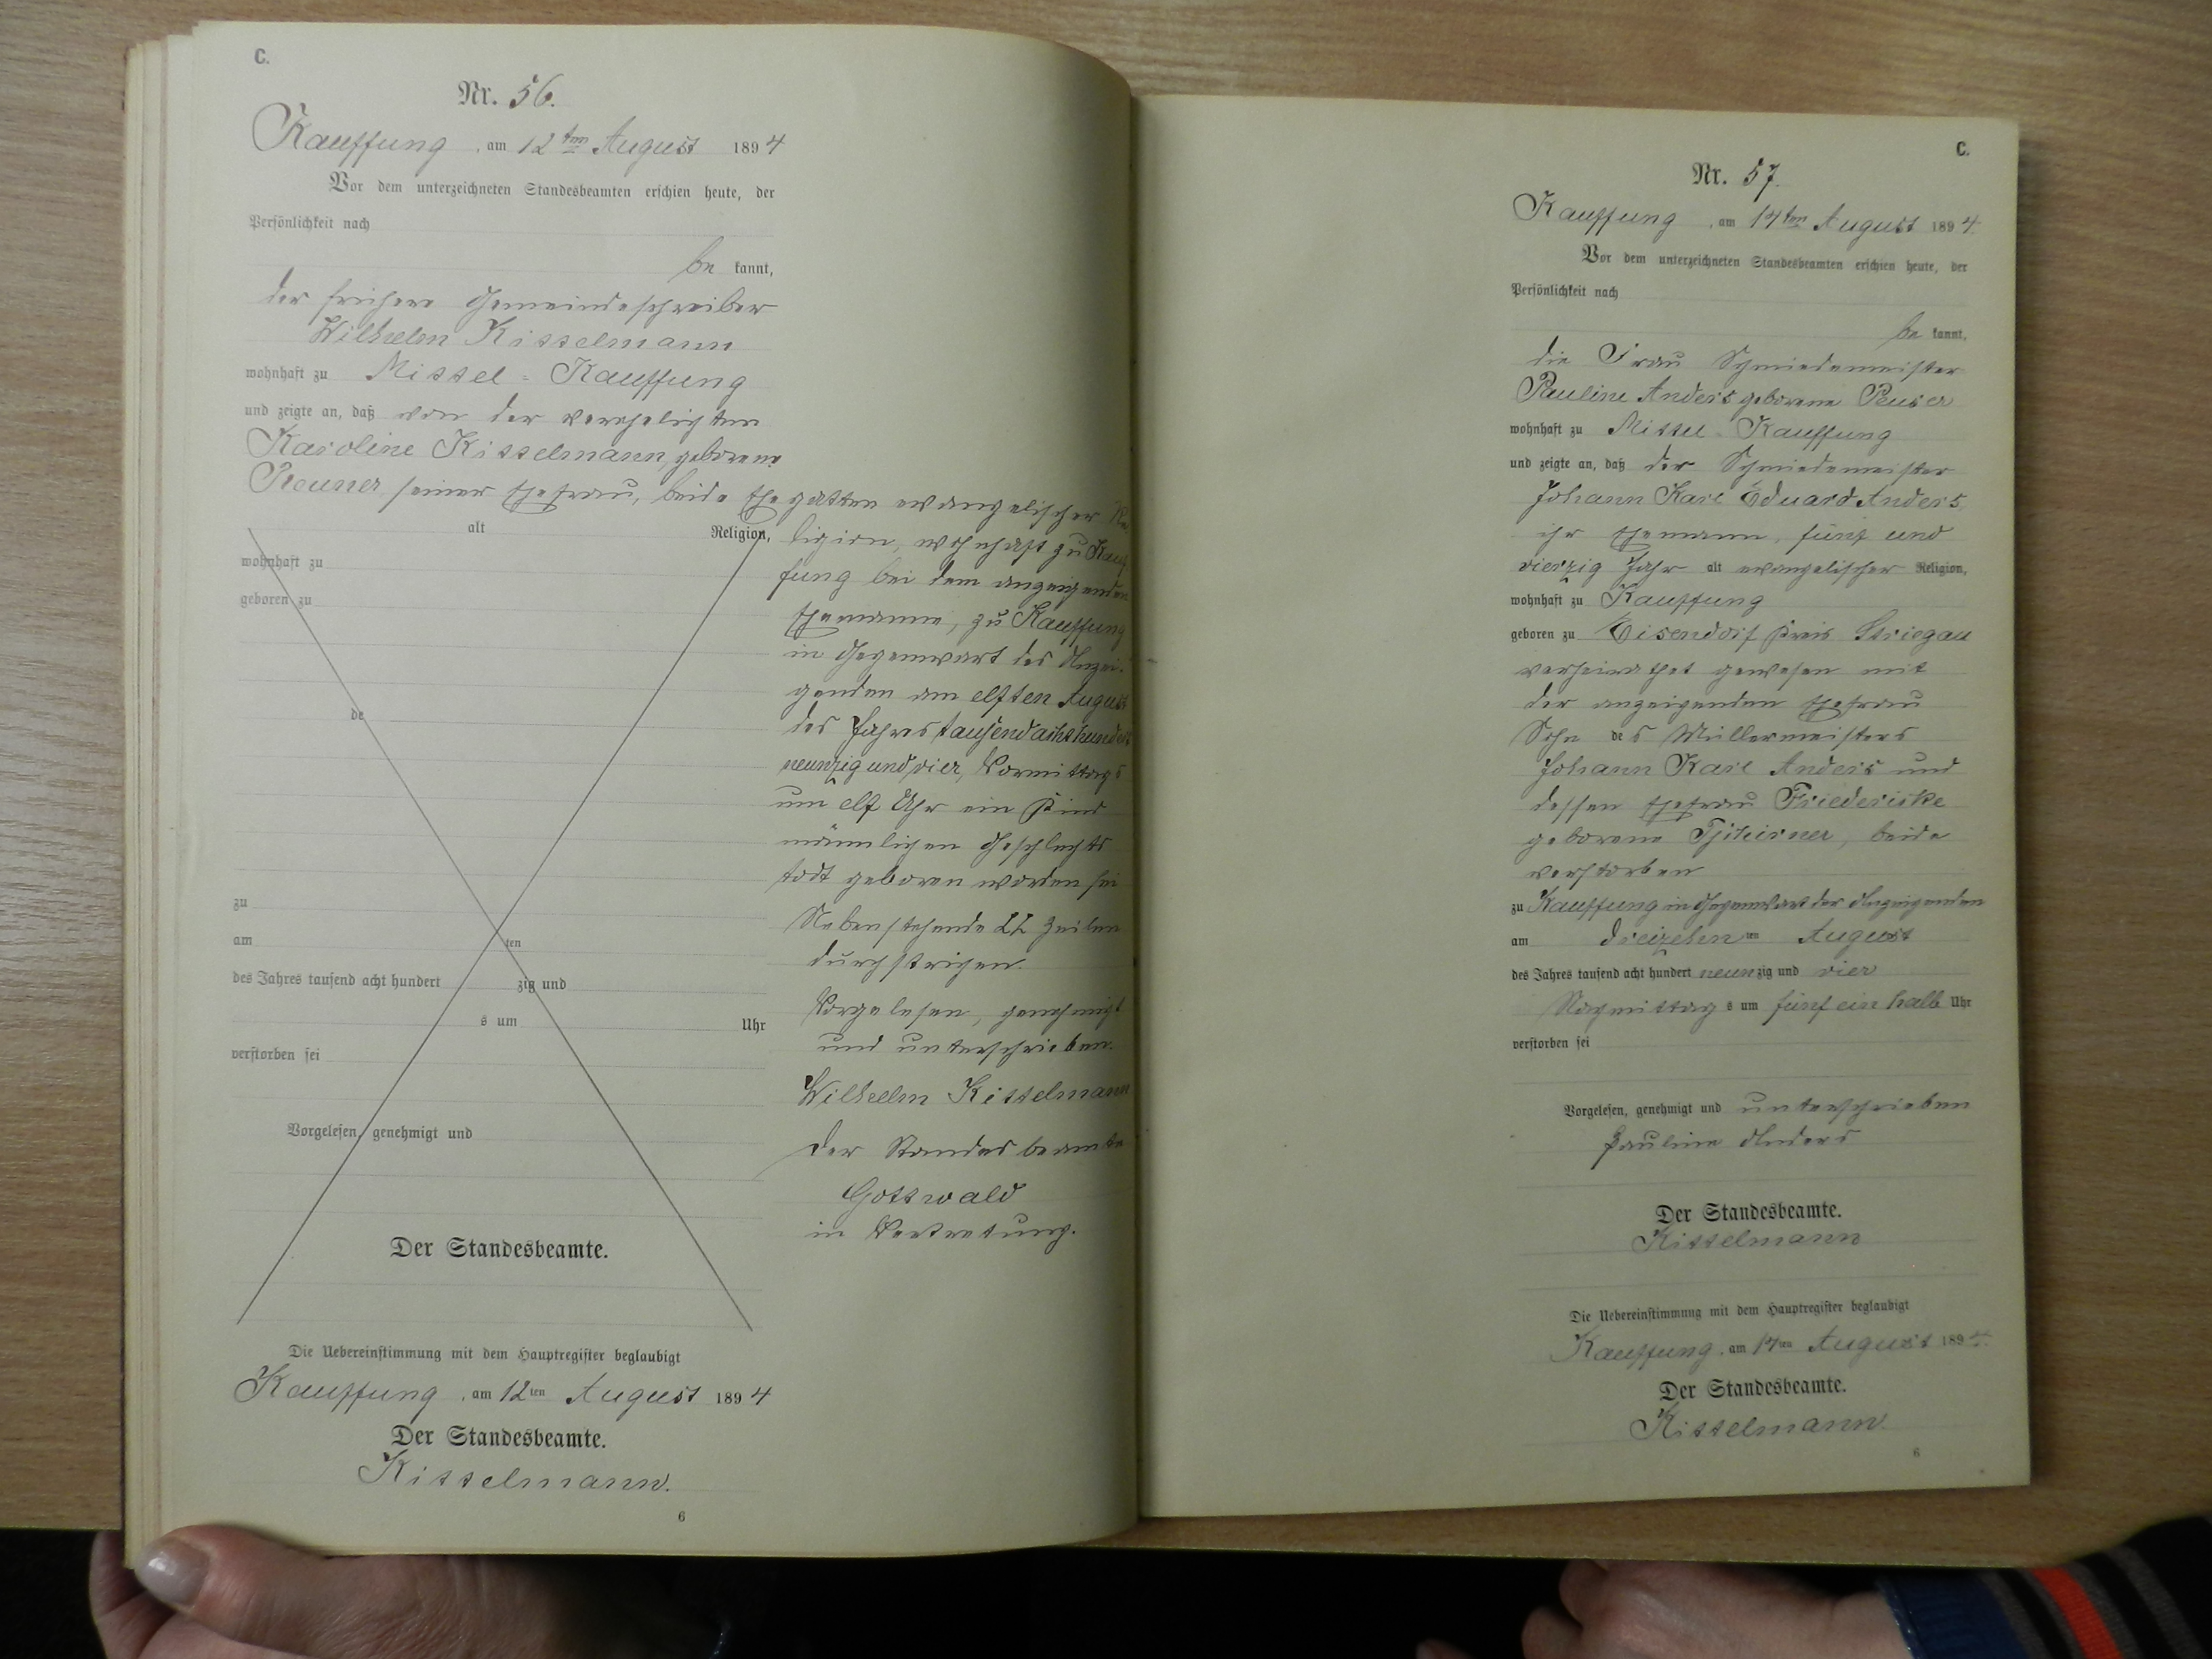 C.
Nr. 56.
Kauffung, am 12ten August 1894
Vor dem unterzeichneten Standesbeamten erschien heute, der
Persönlichkeit nach
be kannt,
der frühere Gemeindeschreiber
Wilhelm Kisselmann
wohnhaft zu Mittel-Kauffung
und zeigte an, daß von der verehelichten
Karoline Kisselmann, geborene
seiner Ehefrau, beide Ehegatten evangelischer Re
alt Religion, ligion, wohnhaft zu Kauf
wohnhaft zu fung bei dem anzeigenden
geboren zu Ehemanne, zu Kauffung
in Gegenwart des Anzei-
genden am elften August
de des Jahres tausend acht hundert
neunzig und vier, Vormittags
um elf Uhr ein Kind
männlichen Geschlechts
todt geboren worden sei
zu Nebenstehende 22 Zeilen
am ten durchstrichen.
des Jahres tausend acht hundert zig und
s um Uhr Vorgelesen, genehmigt
verstorben sei und unterschrieben.
Wilhelm Kisselmann
Vorgelesen, genehmigt und Der Standesbeamte
Gottwald
in Vertretung.
Der Standesbeamte.
Die Uebereinstimmung mit dem Hauptregister beglaubigt
Kauffung, am 12ten August 1894
Der Standesbeamte.
Kisselmann.
6
C.
Nr. 57.
Kauffung, am 14ten August 1894.
Vor dem unterzeichneten Standesbeamten erschien heute, der
Persönlichkeit nach
be kannt,
die Frau Schmiedemeister
Pauline Anders geborene
wohnhaft zu Mittel-Kauffung
und zeigte an, daß der Schmiedemeister
Johann Karl Eduard Anders,
ihr Ehemann, fünf und
vierzig Jahr alt evangelischer Religion,
wohnhaft zu Kauffung
geboren zu Eisendorf Kreis Striegau
verheirathet gewesen mit
der anzeigenden Ehefrau
Sohn des Müllermeisters
Johann Karl Anders und
dessen Ehefrau Friederike
geborene beide
verstorben
zu Kauffung in Gegenwart der Anzeigenden
am dreizehnten August
des Jahres tausend acht hundert neunzig und vier
Nachmittags um fünf ein halb Uhr
verstorben sei
Vorgelesen, genehmigt und unterschrieben
Pauline Anders
Der Standesbeamte.
Kisselmann
Die Uebereinstimmung mit dem Hauptregister beglaubigt
Kauffung, am 14ten August 1894.
Der Standesbeamte.
Kisselmann.
6